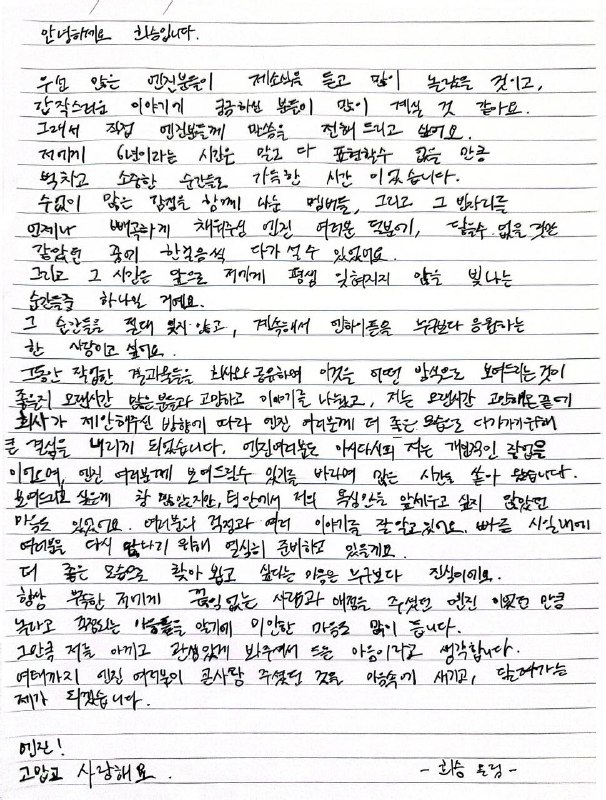 안녕하세요 희승입니다.
우선 많은 엔진분들이 제소식을 듣고 많이 놀랐을 것이고,
갑작스러운 이야기에 궁금하신 분들이 많이 계실 것 같아요.
그래서 직접 엔진분들께 말씀을 전해 드리고 싶어요.
저에게 6년이라는 시간은 말로 다 표현할수 없을 만큼
벅차고 소중한 순간들로 가득한 시간 이었습니다.
수없이 많은 감정을 함께 나눈 멤버들, 그리고 그 빈자리를
언제나 빼곡하게 채워주신 엔진 여러분 덕분에, 닿을수 없을 것만
같았던 꿈에 한걸음씩 다가설 수 있었어요.
그리고 그 시간은 앞으로 저에게 평생 잊혀지지 않을 빛나는
순간들중 하나일 거에요.
그 순간들을 절대 잊지 않고, 계속해서 엔하이픈을 누구보다 응원하는
한 사람이고 싶어요.
그동안 작업한 결과물들을 회사와 공유하며 이것을 어떤 방식으로 보여드리는것이
좋을지 오랜시간 많은분들과 고민하고 이야기를 나눴고, 저는 오랜시간 고민해온끝에
회사가 제안해주신 방향에 따라 엔진 여러분께 더 좋은 모습으로 다가가기위해
큰 결심을 내리게 되었습니다. 엔진여러분도 아시다시피 저는 개인적인 작업을
이어오며, 엔진 여러분께 보여드릴수 있기를 바라며 많은 시간을 쏟아 왔습니다.
보여드리고 싶은게 참 많았지만, 팀 안에서 저의 욕심만을 앞세우고 싶지 않았던
마음도 있었어요. 여러분의 걱정과 여러 이야기를 잘 알고 있어요. 빠른 시일내에
여러분을 다시 만나기 위해 열심히 준비하고 있을게요.
더 좋은 모습으로 찾아 뵙고 싶다는 마음은 누구보다 진심이에요.
항상 부족한 저에게 끊임없는 사랑과 애정을 주셨던 엔진 이었던 만큼
놀라고 걱정되는 마음들을 알기에 미안한 마음도 많이 듭니다.
그만큼 저를 아끼고 관심있게 봐주셔서 드는 마음이라고 생각합니다.
여태까지 엔진 여러분이 큰사랑 주셨던 것을 마음속에 새기고, 달려가는
제가 되겠습니다.
엔진!
고맙고 사랑해요. - 희승 드림 -